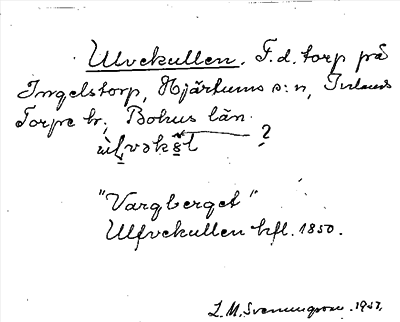 Ulvekullen. F.d. torp på
Ingelstorp, Hjärtums s:n, Inlands
Torpe hr, Bohus län.
?
"Vargberget"
Ulfvekullen hfl. 1850.
L.M. Svenungsson. 1957.